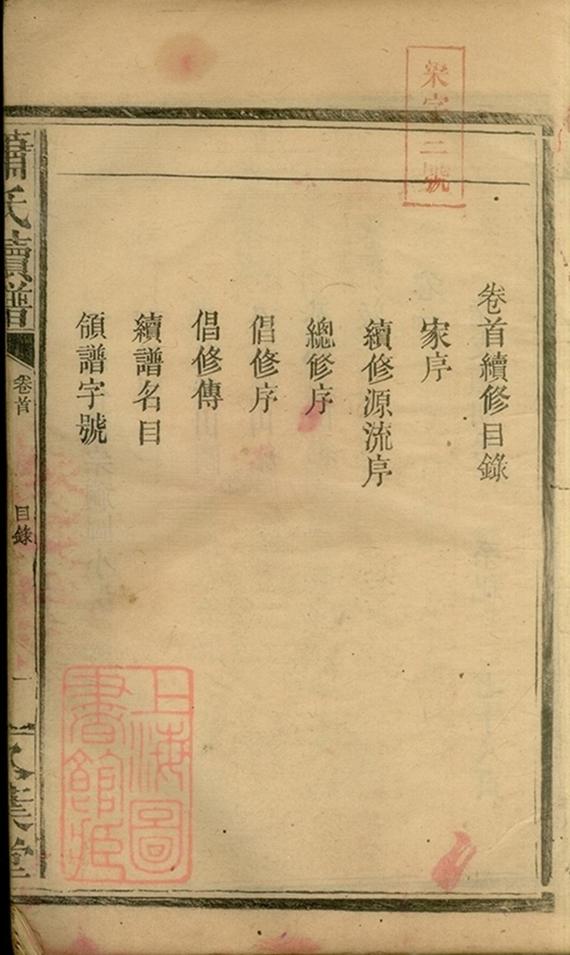 卷首續修目錄
家序
續修源流序
總修序
倡修序
倡修傳
續譜名目
領譜字號
蕭氏續譜
卷首
目錄
一
樂字二號
上海圖書館藏